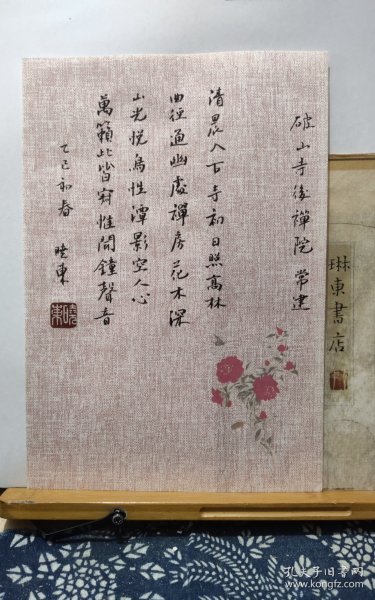 破山寺後禪院 常建
清晨入古寺初日照高林
曲徑通幽處禪房花木深
山光悅鳥性潭影空人心
萬籟此皆寂惟聞鐘聲音
乙巳初春 曉東
曉東
琳東書店
孔夫子旧书网
www.kongfz.com